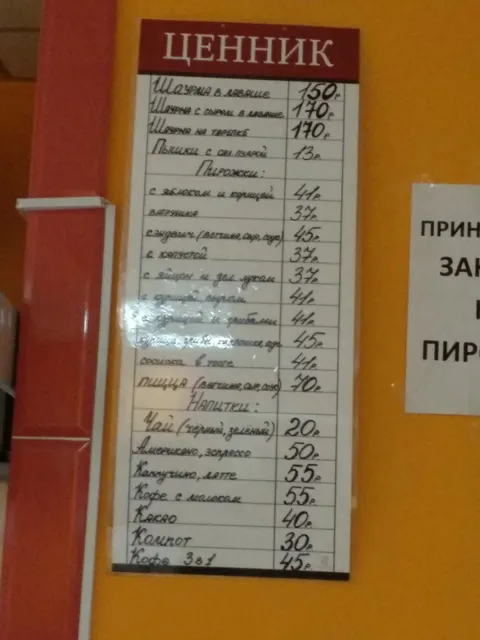 ЦЕННИК
Шаурма в лаваше 150р.
Шаурма с сыром в лаваше 170р.
Шаурма на тарелке 170р.
Пышки с сах. пудрой 13р.
Пирожки:
с яблоком и курицей 41р.
37р.
сэндвич (ветчина, сыр, соус) 45р.
с капустой 37р.
с яйцом и зел. луком 37р.
с курицей, сыром 41р.
с курицей и грибами 41р.
курица, грибы 45р.
сосиска в тесте 41р.
пицца (ветчина, сыр, соус) 70р.
Напитки:
Чай (черный, зеленый) 20р.
Американо, эспрессо 50р.
Каппучино, латте 55р.
Кофе с молоком 55р.
Какао 40р.
Компот 30р.
Кофе 3в1 45р.
ПРИН
ЗАК
ПИРО